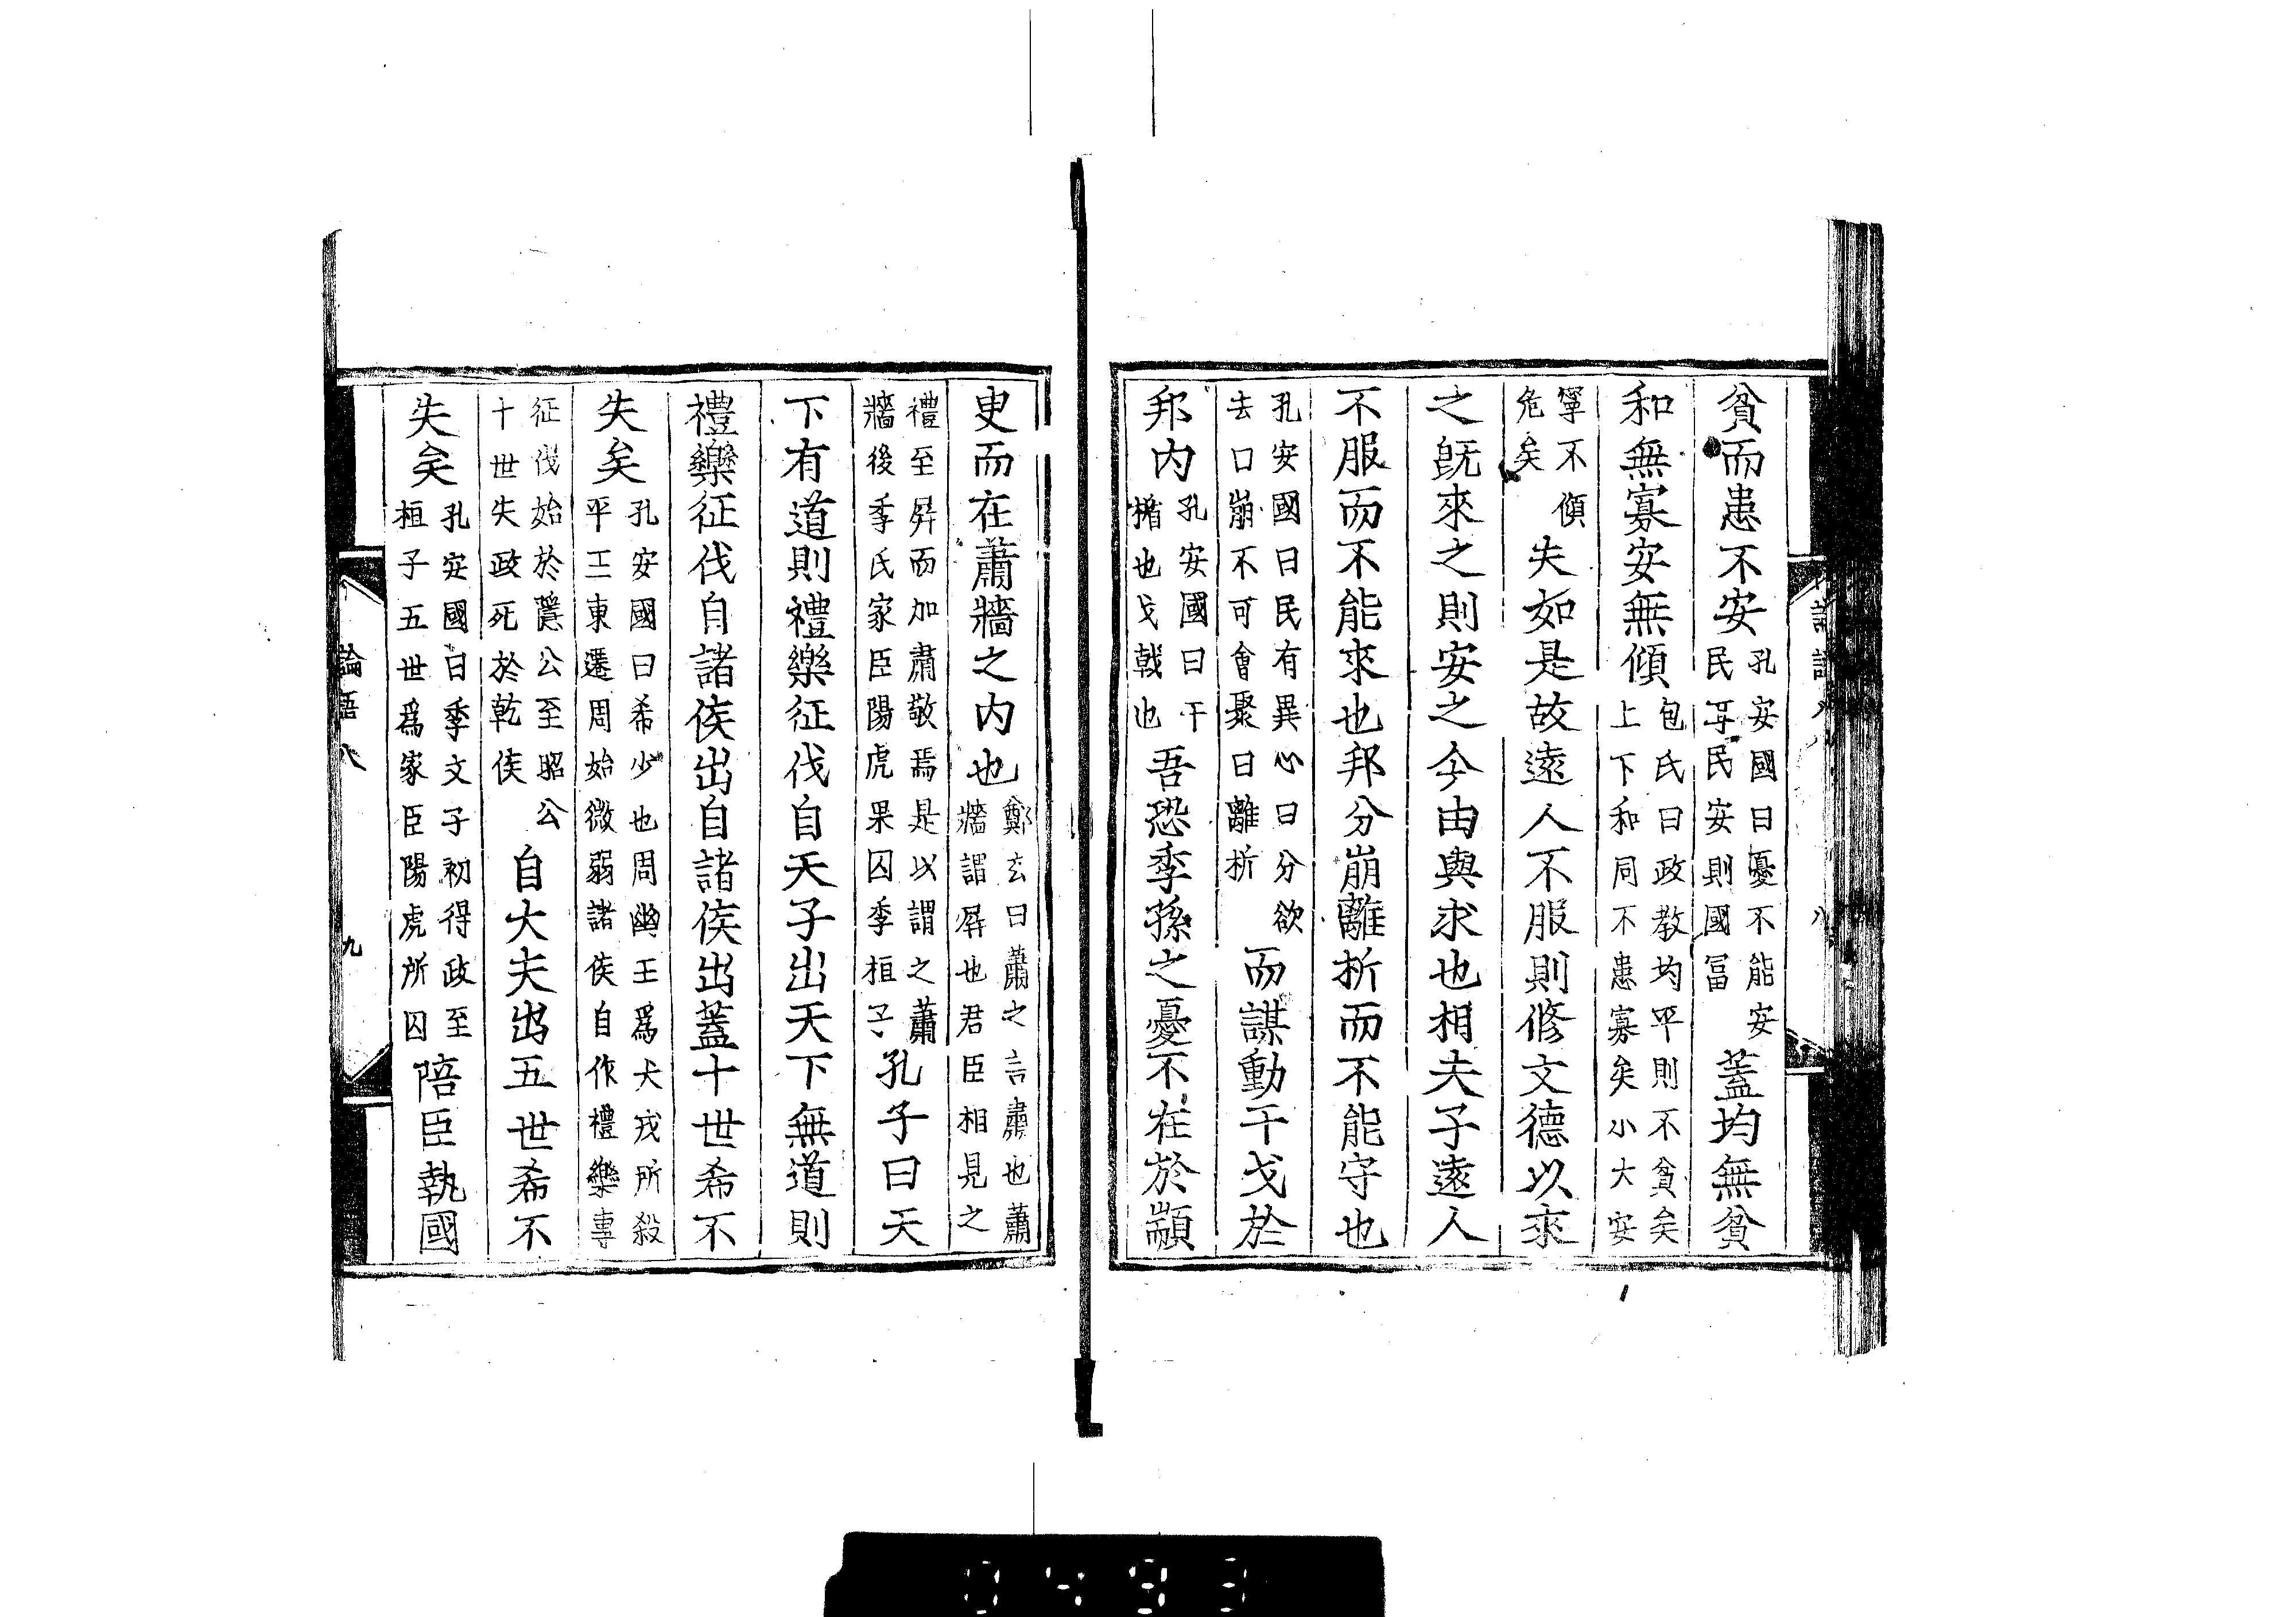 貧而患不安孔安國曰憂不能安民耳民安則國冨蓋均無貧
和無寡安無傾包氏曰政教均平則不貧矣上下和同不患寡矣小大安
寧不傾危矣失如是故遠人不服則修文德以來
之既來之則安之今由與求也相夫子遠人
不服而不能來也邦分崩離析而不能守也
孔安國曰民有異心曰分欲去口崩不可會聚曰離析而謀動干戈於
邦内孔安國曰干楯也戈戟也吾恐季孫之憂不在於顓
臾而在蕭牆之内也鄭玄曰蕭之言肅也蕭牆謂屏也君臣相見之
禮至屏而加肅敬焉是以謂之蕭牆後季氏家臣陽虎果囚季桓子孔子曰天
下有道則禮樂征伐自天子出天下無道則
禮樂征伐自諸侯出自諸侯出蓋十世希不
失矣孔安國曰希少也周幽王爲犬戎所殺平王東遷周始微弱諸侯自作禮樂專
征伐始於隱公至昭公十世失政死於乾侯自大夫出五世希不
失矣孔安國曰季文子初得政至桓子五世爲家臣陽虎所囚陪臣執國
論語八
九
0493